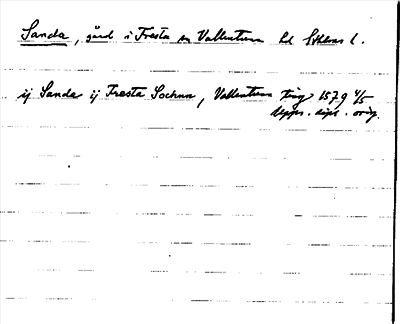 Sanda, gård i Tresta sn Vallentuna hd Sthlms l.
ij Sanda ij Tresta Sochnn, Vallentuna ting 1579 4/5
Upps. dipl. orig.